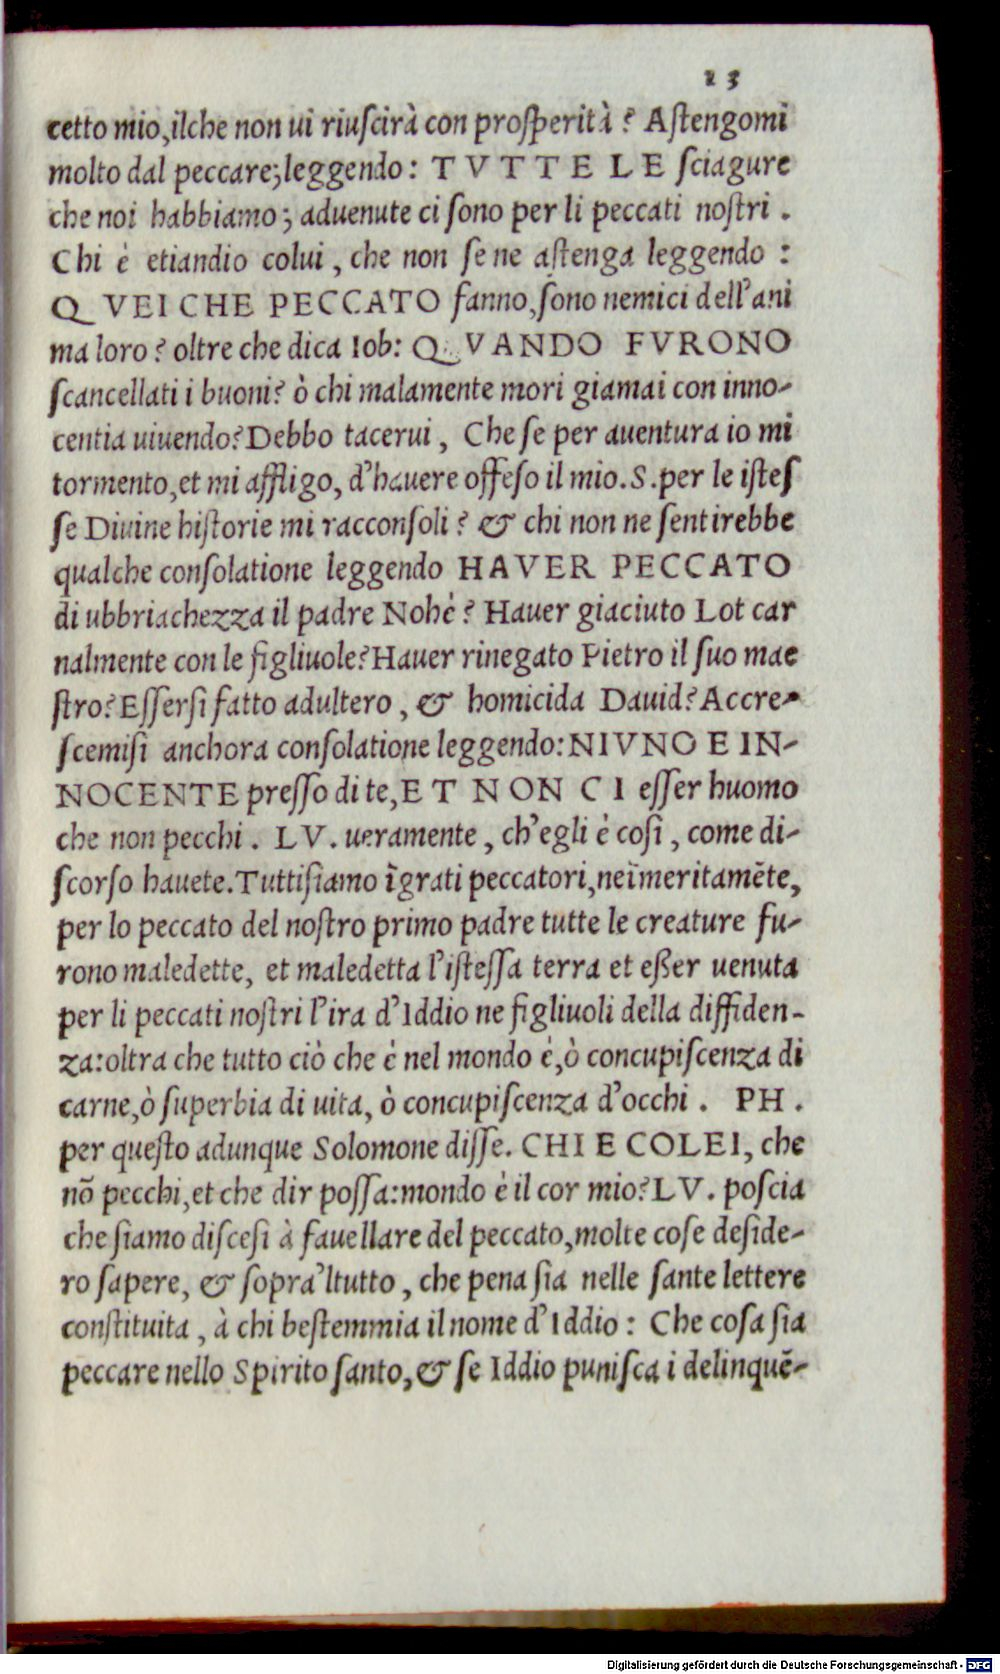 23
cetto mio,ilche non ui riuſcirà con proſperità ? Aſtengomi
molto dal peccare;leggendo: TVTTE LE ſciagure
che noi habbiamo; aduenute ci ſono per li peccati noſtri .
Chi è etiandio colui , che non ſe ne aſtenga leggendo :
QVEI CHE PECCATO fanno,ſono nemici dell'ani
ma loro? oltre che dica Iob: QVANDO FVRONO
ſcancellati i buoni? ò chi malamente mori giamai con inno-
centia uiuendo?Debbo tacerui , Che ſe per auentura io mi
tormento,et mi affligo, d'hauere offeſo il mio.S.per le iſteſ
ſe Diuine hiſtorie mi racconſoli ? & chi non ne ſentirebbe
qualche conſolatione leggendo HAVER PECCATO
di ubbriachezza il padre Nohè ? Hauer giaciuto Lot car
nalmente con le figliuole?Hauer rinegato Pietro il ſuo mae
ſtro?Eſſerſi fatto adultero , & homicida Dauid?Accre-
ſcemiſi anchora conſolatione leggendo:NIVNO E IN-
NOCENTE preſſo di te,ET NON CI eſſer huomo
che non pecchi . LV. ueramente , ch'egli è coſi , come di-
ſcorſo hauete.Tuttiſiamo īgrati peccatori,neīmeritamēte,
per lo peccato del noſtro primo padre tutte le creature fu-
rono maledette, et maledetta l'iſteſſa terra et eßer uenuta
per li peccati noſtri l'ira d'Iddio ne figliuoli della diffiden-
za:oltra che tutto ciò che è nel mondo è,ò concupiſcenza di
carne,ò ſuperbia di uita, ò concupiſcenza d'occhi . PH .
per queſto adunque Solomone diſſe. CHI E COLEI, che
nō pecchi,et che dir poſſa:mondo è il cor mio?LV. poſcia
che ſiamo diſceſi à fauellare del peccato,molte coſe deſide-
ro ſapere, & ſopra'ltutto , che pena ſia nelle ſante lettere
conſtituita , à chi beſtemmia il nome d'Iddio : Che coſa ſia
peccare nello Spirito ſanto,& ſe Iddio puniſca i delinquē-
Digitalisierung gefördert durch die Deutsche Forschungsgemeinschaft - DFG